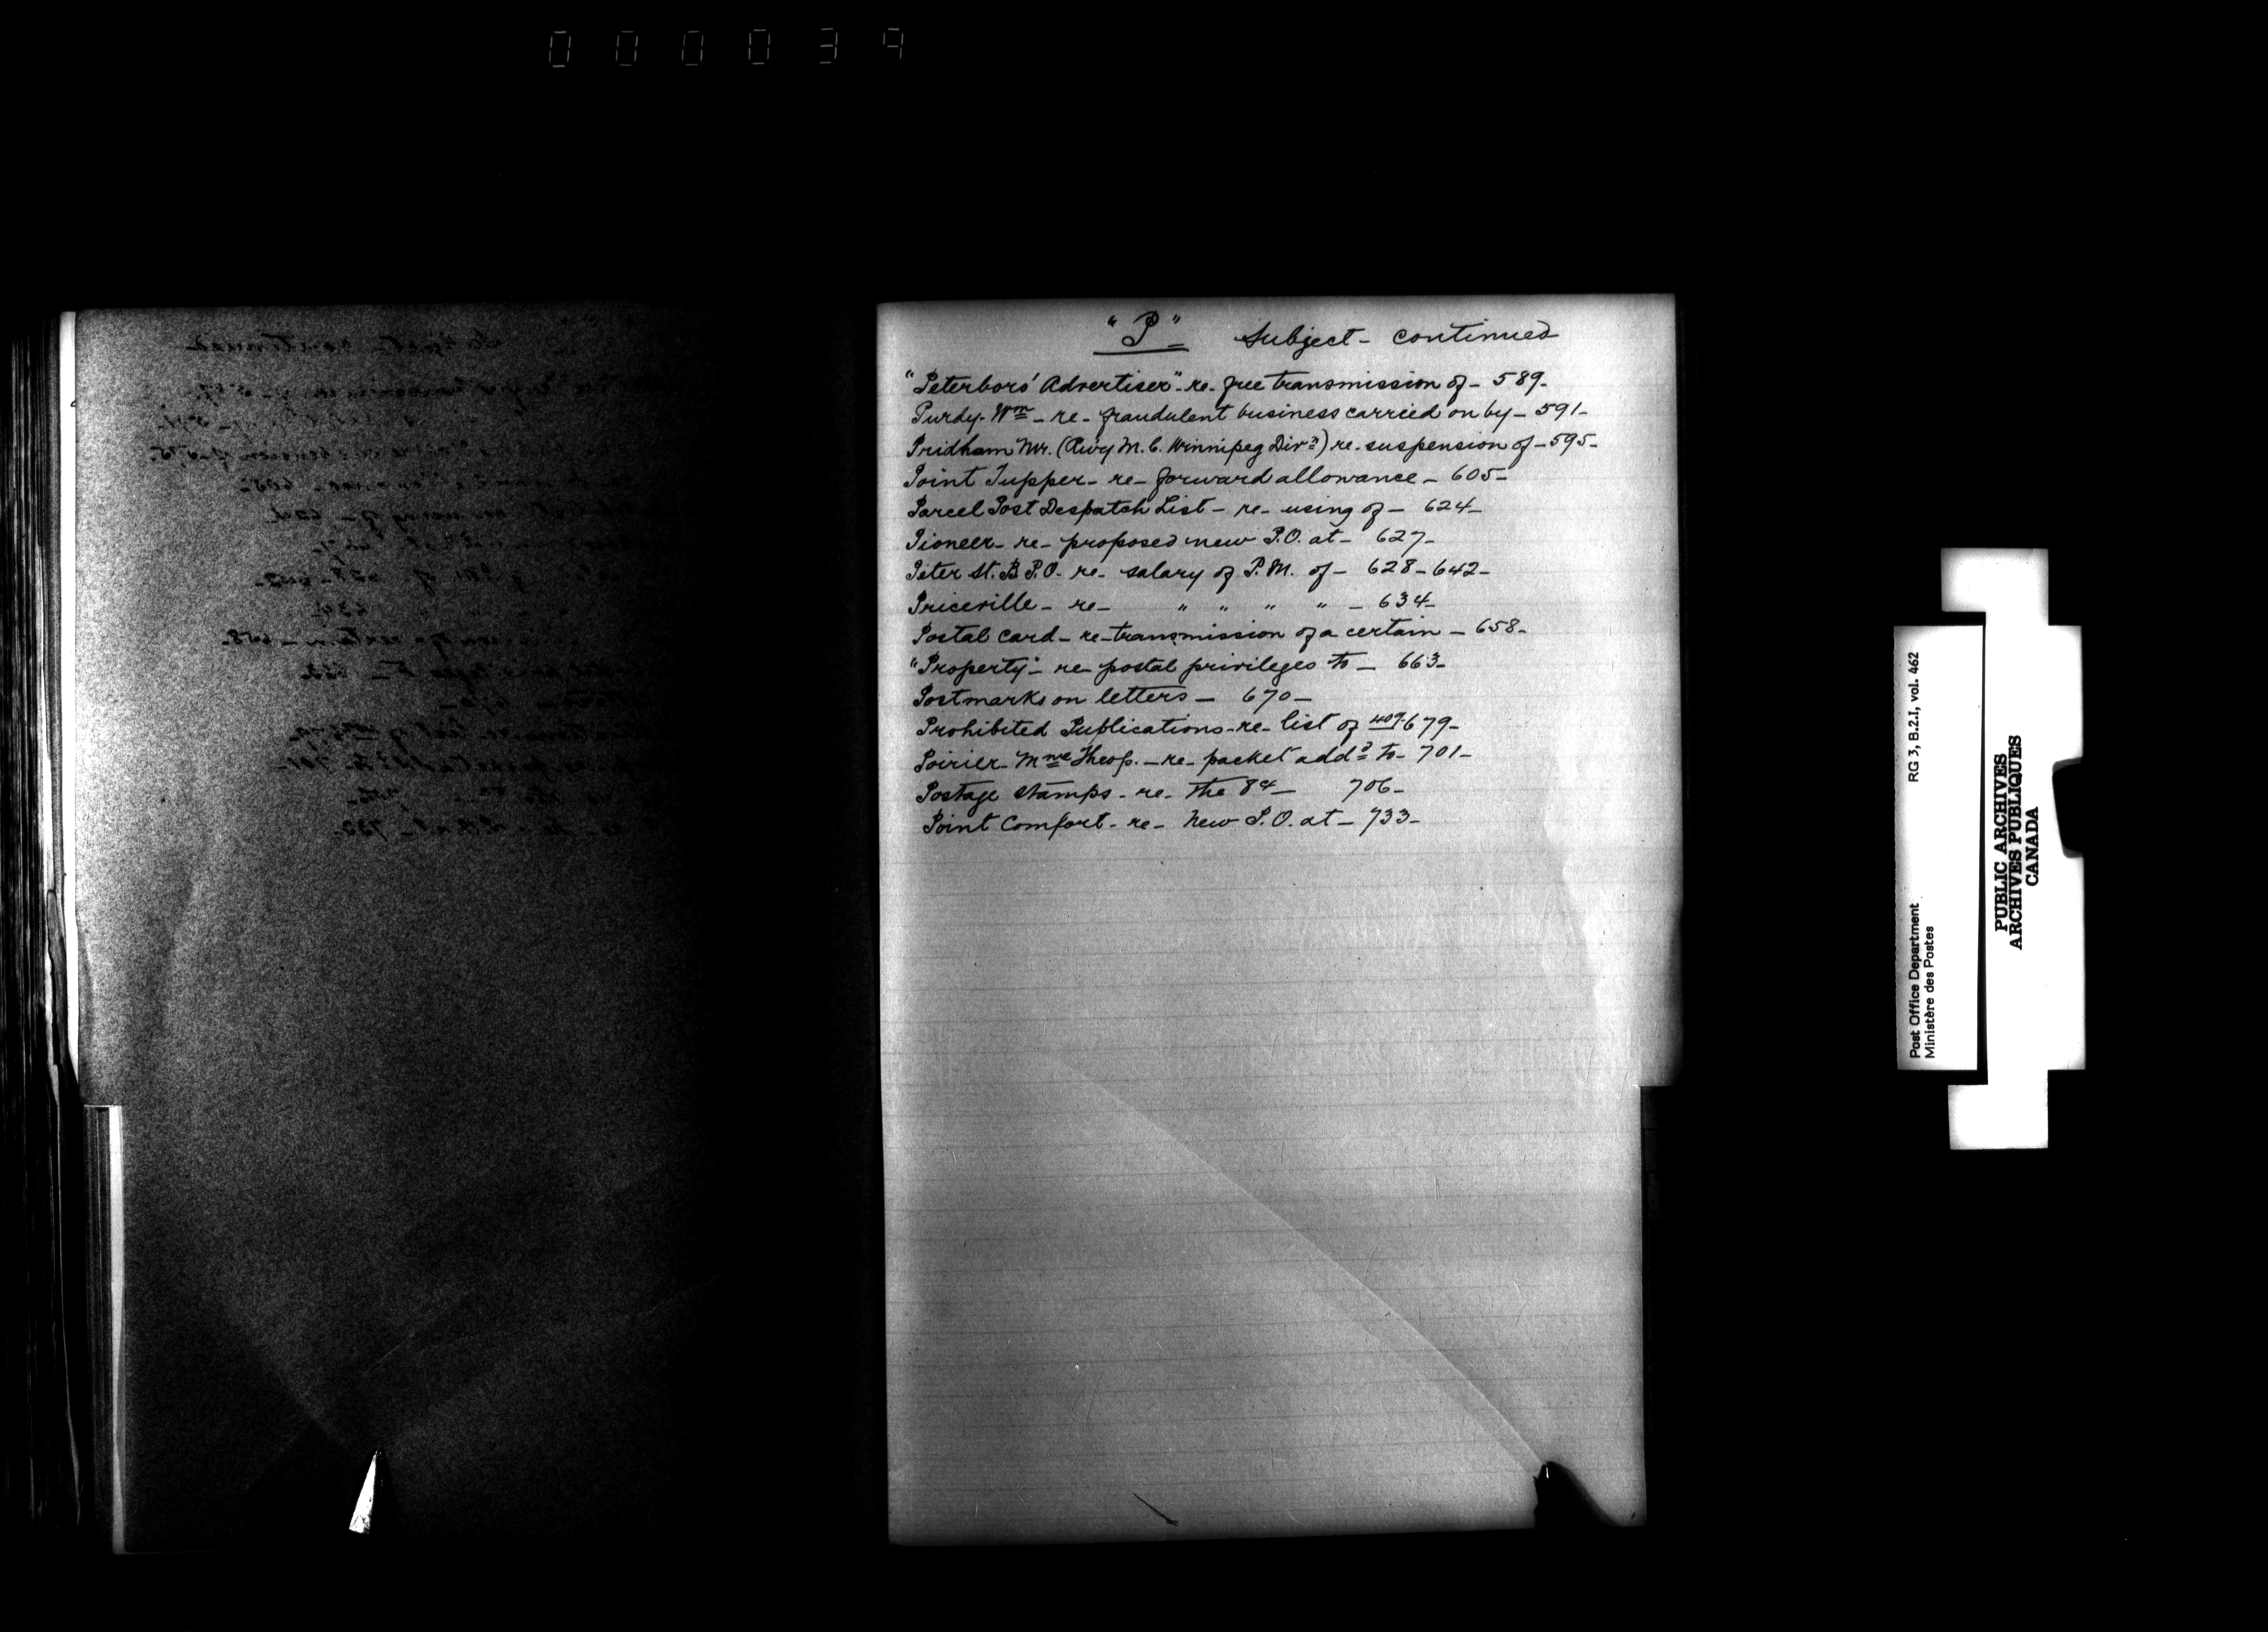 000039
"P" Subject - continued
"Peterboro' Advertiser" - re - free transmission of - 589 -
Purdy - Wm - re - fraudulent business carried on by - 591 -
Pridham Mr. (Rwy M. C. Winnipeg Divn) re - suspension of - 595 -
Point Tupper - re - forward allowance - 605 -
Parcel Post Despatch List - re - using of - 624 -
Pioneer - re - proposed new P.O. at - 627 -
Peter St. B P.O. - re - salary of P.M. of - 628 - 642 -
Priceville - re - " " " " - 634 -
Postal card - re - transmission of a certain - 658 -
"Property" - re - postal privileges to - 663 -
Postmarks on letters - 670 -
Prohibited Publications - re - list of 409 - 679 -
Poirier - Mme Theop. - re - packet addd to - 701 -
Postage stamps - re - the 8¢ - 706 -
Point Comfort - re - New P.O. at - 733 -
Post Office Department RG 3, B.2.I, vol. 462
Ministère des Postes
PUBLIC ARCHIVES
ARCHIVES PUBLIQUES
CANADA